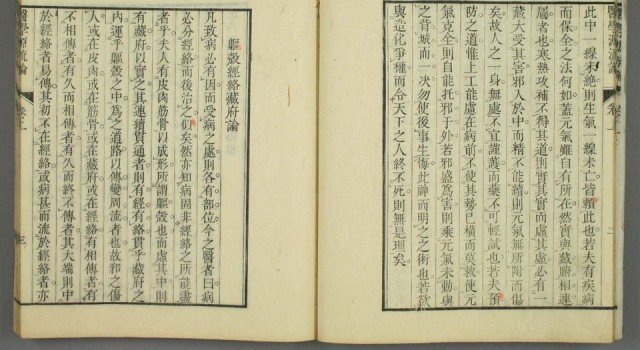 醫學源流論 卷上 二
此中一線未絕則生氣一線未亡皆賴此也若夫有疾病
而保全之法何如蓋元氣雖自有所在然實與臟腑相連
屬者也寒熱攻補不得其道則實其實而虛其虛必有一
藏大受其害邪入於中而精不能續則元氣無所附而傷
矣故人之一身無處不宜謹護而藥不可輕試也若夫預
防之道惟上工能慮在病前不使其勢已橫而莫救使元
氣克全則自能托邪于外若邪盛爲害則乘元氣未動與
之背城而一決勿使後事生悔此神而明之之術也若欲
與造化爭權而令天下之人終不死則無是理矣。
軀殼經絡藏府論
凡致病必有因而受病之處則各有部位今之醫者曰病
必分經絡而後治之似矣然亦知病固非經絡之所能盡
者乎夫人有皮肉筋骨以成形所謂軀殼也而虛其中則
有藏府以實之其連續貫通者則有經有絡貫乎藏府之
內運乎軀殼之中爲之道路以傳變周流者也故邪之傷
人或在皮肉或在筋骨或在藏府或在經絡有相傳者有
不相傳者有久而相傳者有久而終不傳者其大端則中
於經絡者易傳其初不在經絡或病甚而流於經絡者亦
醫學源流論 卷上 三